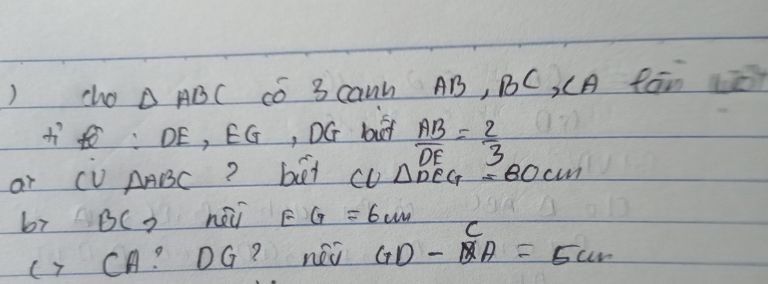 ) cho Δ ABC có 3 cạnh AB, BC, CA lần lượt
tỉ lệ : DE, EG, DG biết AB/DE = 2/3
a> CV ΔABC ? biết CV ΔDEG = 80cm
b> BC? nếu EG = 6cm
c> CA? DG? nếu GD - CA = 5cm